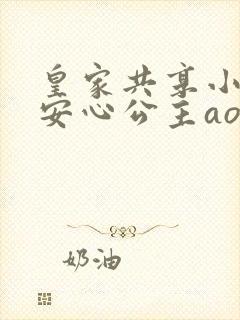 皇家共享小
安心公主ao
奶油